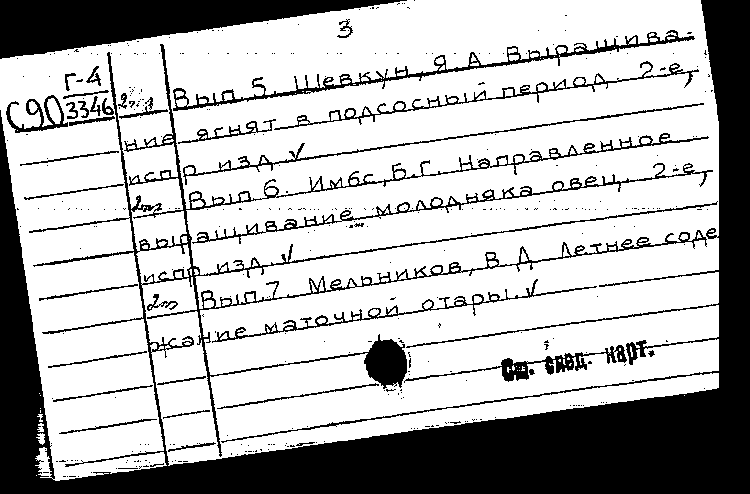 3
Г-4
С90 3346
2эк Вып 5. Шевкун, Я. А Выращива-
ние ягнят в подсосный период. 2-е,
испр изд ✓
2эк Вып 6. Имбс, Б.Г. Направленное
выращивание молодняка овец. 2-е,
испр изд. ✓
2э Вып.7. Мельников, В Д Летнее соде
ржание маточной отары. ✓
См. след. карт.